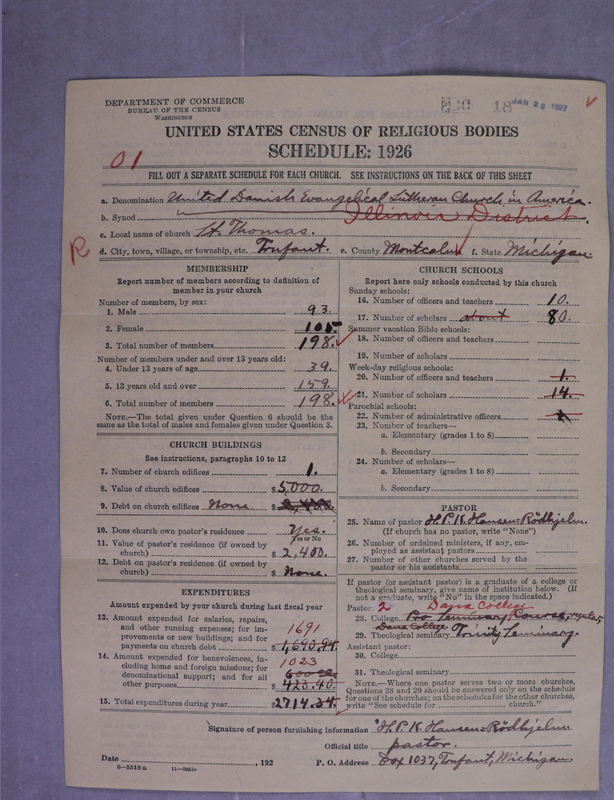 DEPARTMENT OF COMMERCE
BUREAU OF THE CENSUS
WASHINGTON
18 JAN 29 1927
UNITED STATES CENSUS OF RELIGIOUS BODIES
SCHEDULE: 1926
01
FILL OUT A SEPARATE SCHEDULE FOR EACH CHURCH. SEE INSTRUCTIONS ON THE BACK OF THIS SHEET
a. Denomination United Danish Evangelical Lutheran Church in America.
b. Synod Illinois District.
c. Local name of church St. Thomas.
R
d. City, town, village, or township, etc. Trufant. e. County Montcalm f. State Michigan
MEMBERSHIP
Report number of members according to definition of
member in your church
Number of members, by sex:
1. Male 93.
2. Female 105
3. Total number of members. 198.
Number of members under and over 13 years old:
4. Under 13 years of age 39.
5. 13 years old and over 159.
6. Total number of members 198.
NOTE.—The total given under Question 6 should be the
same as the total of males and females given under Question 3.
CHURCH BUILDINGS
See instructions, paragraphs 10 to 12
7. Number of church edifices 1.
8. Value of church edifices $ 5,000.
9. Debt on church edifices None $
10. Does church own pastor's residence Yes.
Yes or No
11. Value of pastor's residence (if owned by
church) $ 2,400.
12. Debt on pastor's residence (if owned by
church) $ None.
EXPENDITURES
Amount expended by your church during last fiscal year
13. Amount expended for salaries, repairs,
and other running expenses; for im-
provements or new buildings; and for
payments on church debt 1691
$ 1,690.94.
14. Amount expended for benevolences, in-
cluding home and foreign missions; for
denominational support; and for all
other purposes 1023
600
$ 423.40.
15. Total expenditures during year $ 2714.34.
CHURCH SCHOOLS
Report here only schools conducted by this church
Sunday schools:
16. Number of officers and teachers 10.
17. Number of scholars about 80.
Summer vacation Bible schools:
18. Number of officers and teachers
19. Number of scholars
Week-day religious schools:
20. Number of officers and teachers 1.
21. Number of scholars 14.
Parochial schools:
22. Number of administrative officers
23. Number of teachers—
a. Elementary (grades 1 to 8)
b. Secondary
24. Number of scholars—
a. Elementary (grades 1 to 8)
b. Secondary
PASTOR
25. Name of pastor H. P. K. Hansen-Rödhjelm
(If church has no pastor, write "None")
26. Number of ordained ministers, if any, em-
ployed as assistant pastors
27. Number of other churches served by the
pastor or his assistants
If pastor (or assistant pastor) is a graduate of a college or
theological seminary, give name of institution below. (If
not a graduate, write "No" in the space indicated.)
Pastor: 2 Dana College
28. College Pro Seminary Course,
Dana College
29. Theological seminary Trinity Seminary.
Assistant pastor:
30. College
31. Theological seminary
NOTE.—Where one pastor serves two or more churches,
Questions 28 and 29 should be answered only on the schedule
for one of the churches; on the schedules for the other churches,
write "See schedule for church."
Signature of person furnishing information H. P. K. Hansen-Rödhjelm
Official title pastor.
Date , 192 P. O. Address Box 1037, Trufant, Michigan.